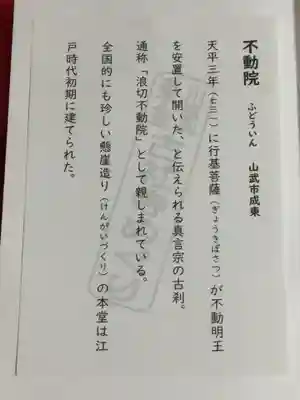 不動院 ふどういん 山武市成東
天平三年（七三一）に行基菩薩（ぎょうきぼさつ）が不動明王
を安置して開いた、と伝えられる真言宗の古刹。
通称「浪切不動院」として親しまれている。
全国的にも珍しい懸崖造り（けんがいづくり）の本堂は江
戸時代初期に建てられた。